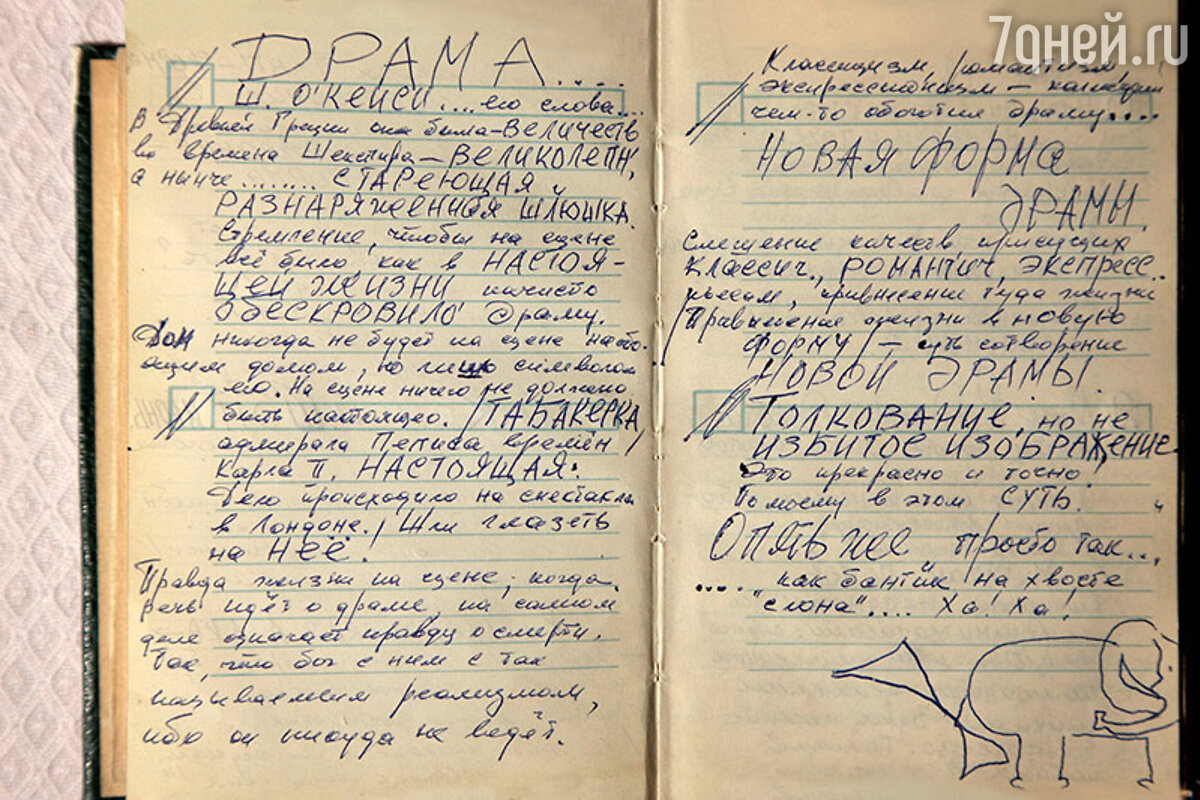 ДРАМА.....
Ш. О'КЕЙСИ.... его слова...
В Древней Греции она была–ВЕЛИЧЕСТВ
во времена Шекспира–ВЕЛИКОЛЕПН,
а нынче........ СТАРЕЮЩАЯ
РАЗНАРЯЖЕННАЯ ШЛЮШКА.
Стремление, чтобы на сцене
всё было, как в НАСТОЯ-
ЩЕЙ ЖИЗНИ начисто
ОБЕСКРОВИЛО драму.
Дом никогда не будет на сцене насто-
ящим домом, но лишь символом
его. На сцене ничего не должно
быть настоящего. ТАБАКЕРКА
адмирала Пеписа времён
Карла II. НАСТОЯЩАЯ:
Дело происходило на спектакле
в Лондоне. Шли глазеть
на НЕЁ!
Правда жизни на сцене, когда
речь идёт о драме, на самом
деле означает правду о смерти.
Так, что бог с ним с так
называемым реализмом,
ибо он никуда не ведёт.
7дней.ru
Классицизм, романтизм,
экспрессионизм – каждый
чем-то обогатил драму....
НОВАЯ ФОРМА
ДРАМЫ.
Смешение качеств присущих
КЛАССИЧ., РОМАНТИЧ, ЭКСПРЕСС..
пьесам, привнесение туда жизни
Привнесение жизни в новую
ФОРМУ – суть сотворение
НОВОЙ ДРАМЫ.
ТОЛКОВАНИЕ, но не
ИЗБИТОЕ ИЗОБРАЖЕНИЕ
Это прекрасно и точно!
По моему в этом СУТЬ.
ОПЯТЬ ЖЕ просто так...
..... как бантик на хвосте
"слона".... Ха! Ха!